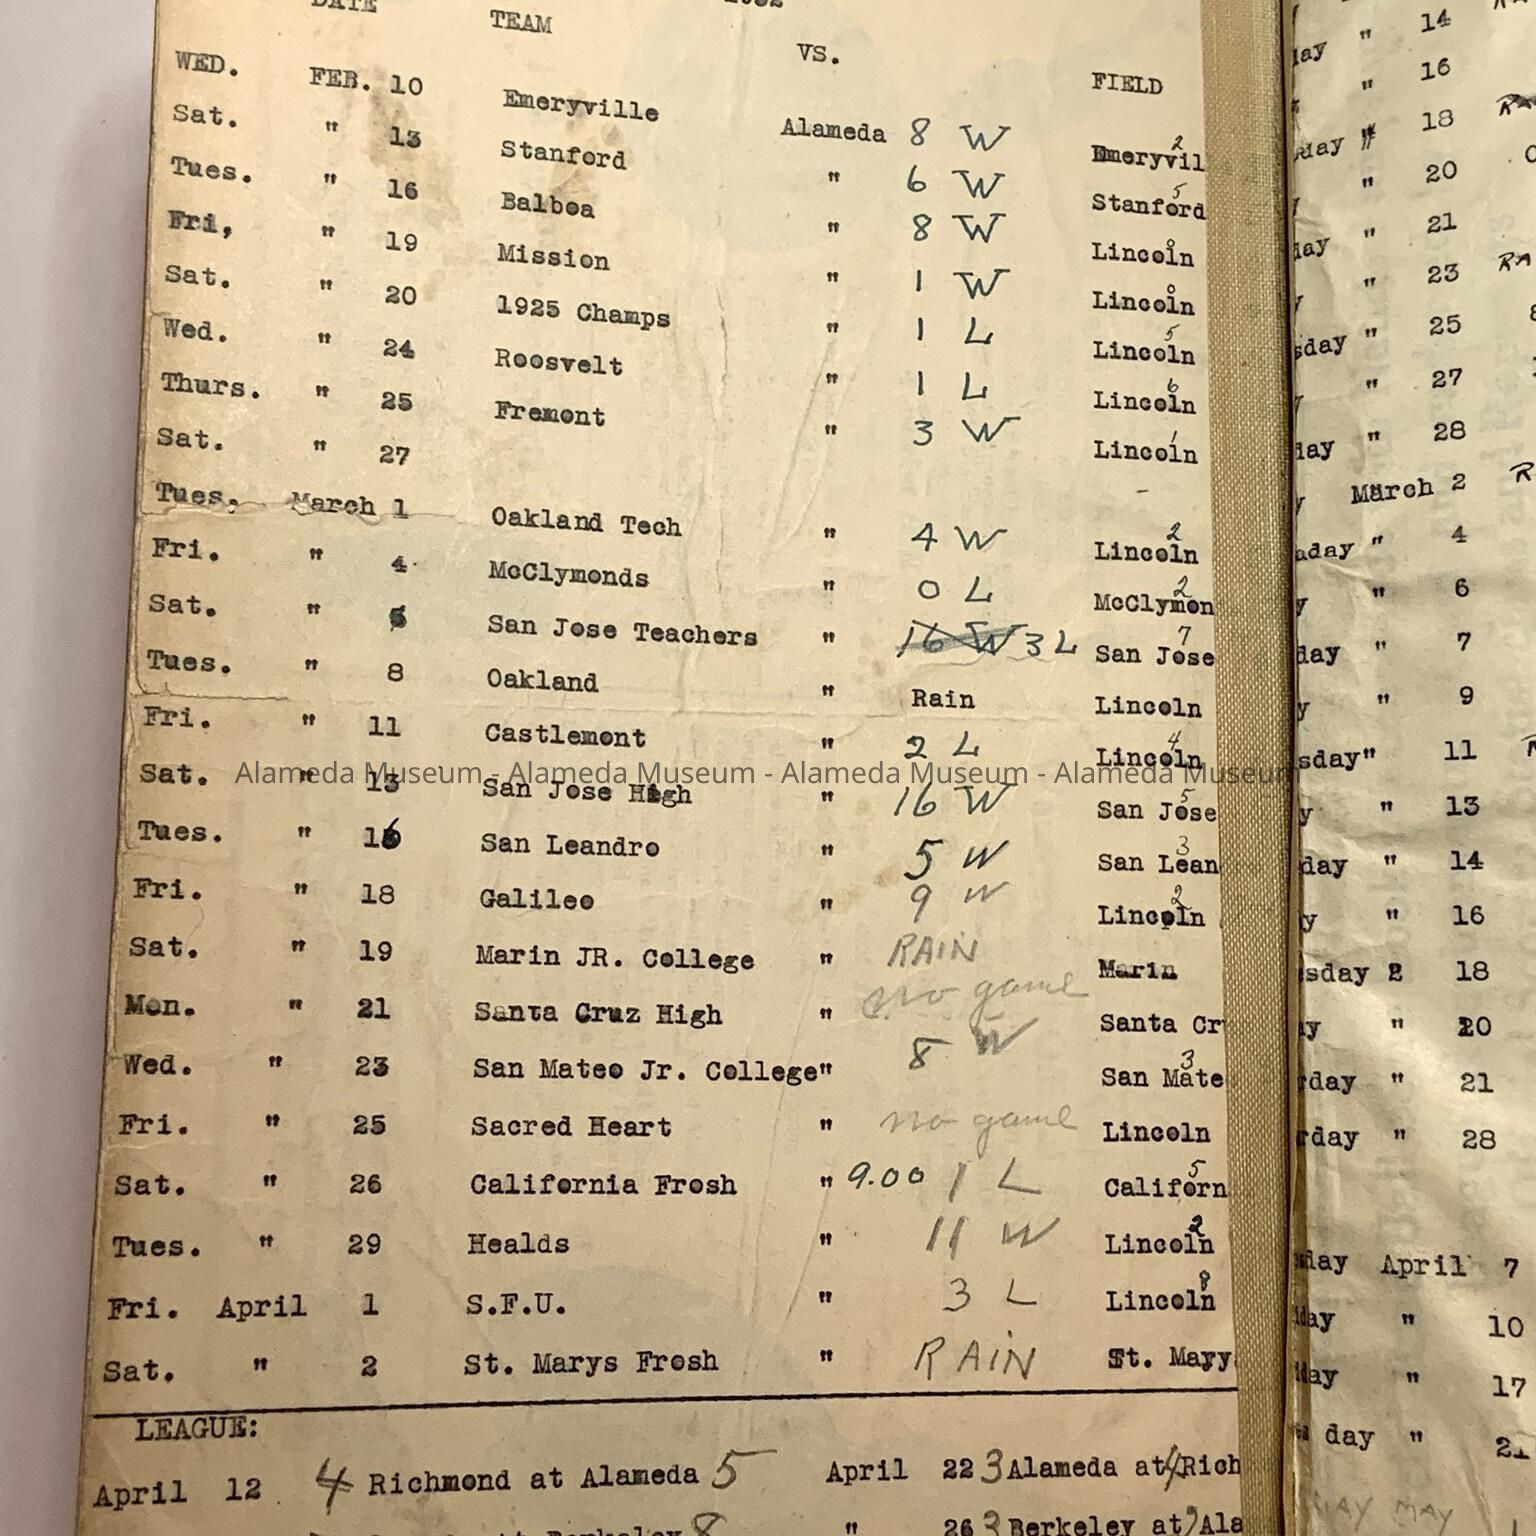 DATE TEAM VS. FIELD
WED. FEB. 10 Emeryville Alameda 8 W Emeryvil 2
Sat. " 13 Stanford " 6 W Stanford 5
Tues. " 16 Balboa " 8 W Lincoln
Fri, " 19 Mission " 1 W Lincoln 0
Sat. " 20 1925 Champs " 1 L Lincoln 5
Wed. " 24 Roosvelt " 1 L Lincoln 6
Thurs. " 25 Fremont " 3 W Lincoln 1
Sat. " 27 -
Tues. March 1 Oakland Tech " 4 W Lincoln 2
Fri. " 4 McClymonds " 0 L McClymon 2
Sat. " San Jose Teachers " 16 W 3 L San Jose 7
Tues. " 8 Oakland " Rain Lincoln
Fri. " 11 Castlemont " 2 L Lincoln 4
Sat. " 13 San Jose High " 16 W San Jose 5
Tues. " 16 San Leandro " 5 W San Lean 3
Fri. " 18 Galileo " 9 W Lincoln 2
Sat. " 19 Marin JR. College " RAIN Marin
Mon. " 21 Santa Cruz High " no game Santa Cr
Wed. " 23 San Mateo Jr. College" 8 W San Mate 3
Fri. " 25 Sacred Heart " no game Lincoln
Sat. " 26 California Frosh " 9.00 1 L Californ 5
Tues. " 29 Healds " 11 W Lincoln 2
Fri. April 1 S.F.U. " 3 L Lincoln 8
Sat. " 2 St. Marys Frosh " RAIN St. Mayy
LEAGUE:
April 12 4 Richmond at Alameda 5 April 22 3 Alameda at 4 Rich
Berkeley 8 " 26 3 Berkeley at 9 Ala
" 14
day " 16
" 18
day " 20
" 21
day " 23
" 25
sday " 27
" 28
day March 2
" 4
day " 6
" 7
day " 9
y " 11
sday" 13
y " 14
day " 16
y " 18
sday 20
y " 21
rday " 28
rday "
day April 7
day " 10
day " 17
day " 21
MAY
Alameda Museum - Alameda Museum - Alameda Museum - Alameda Museum